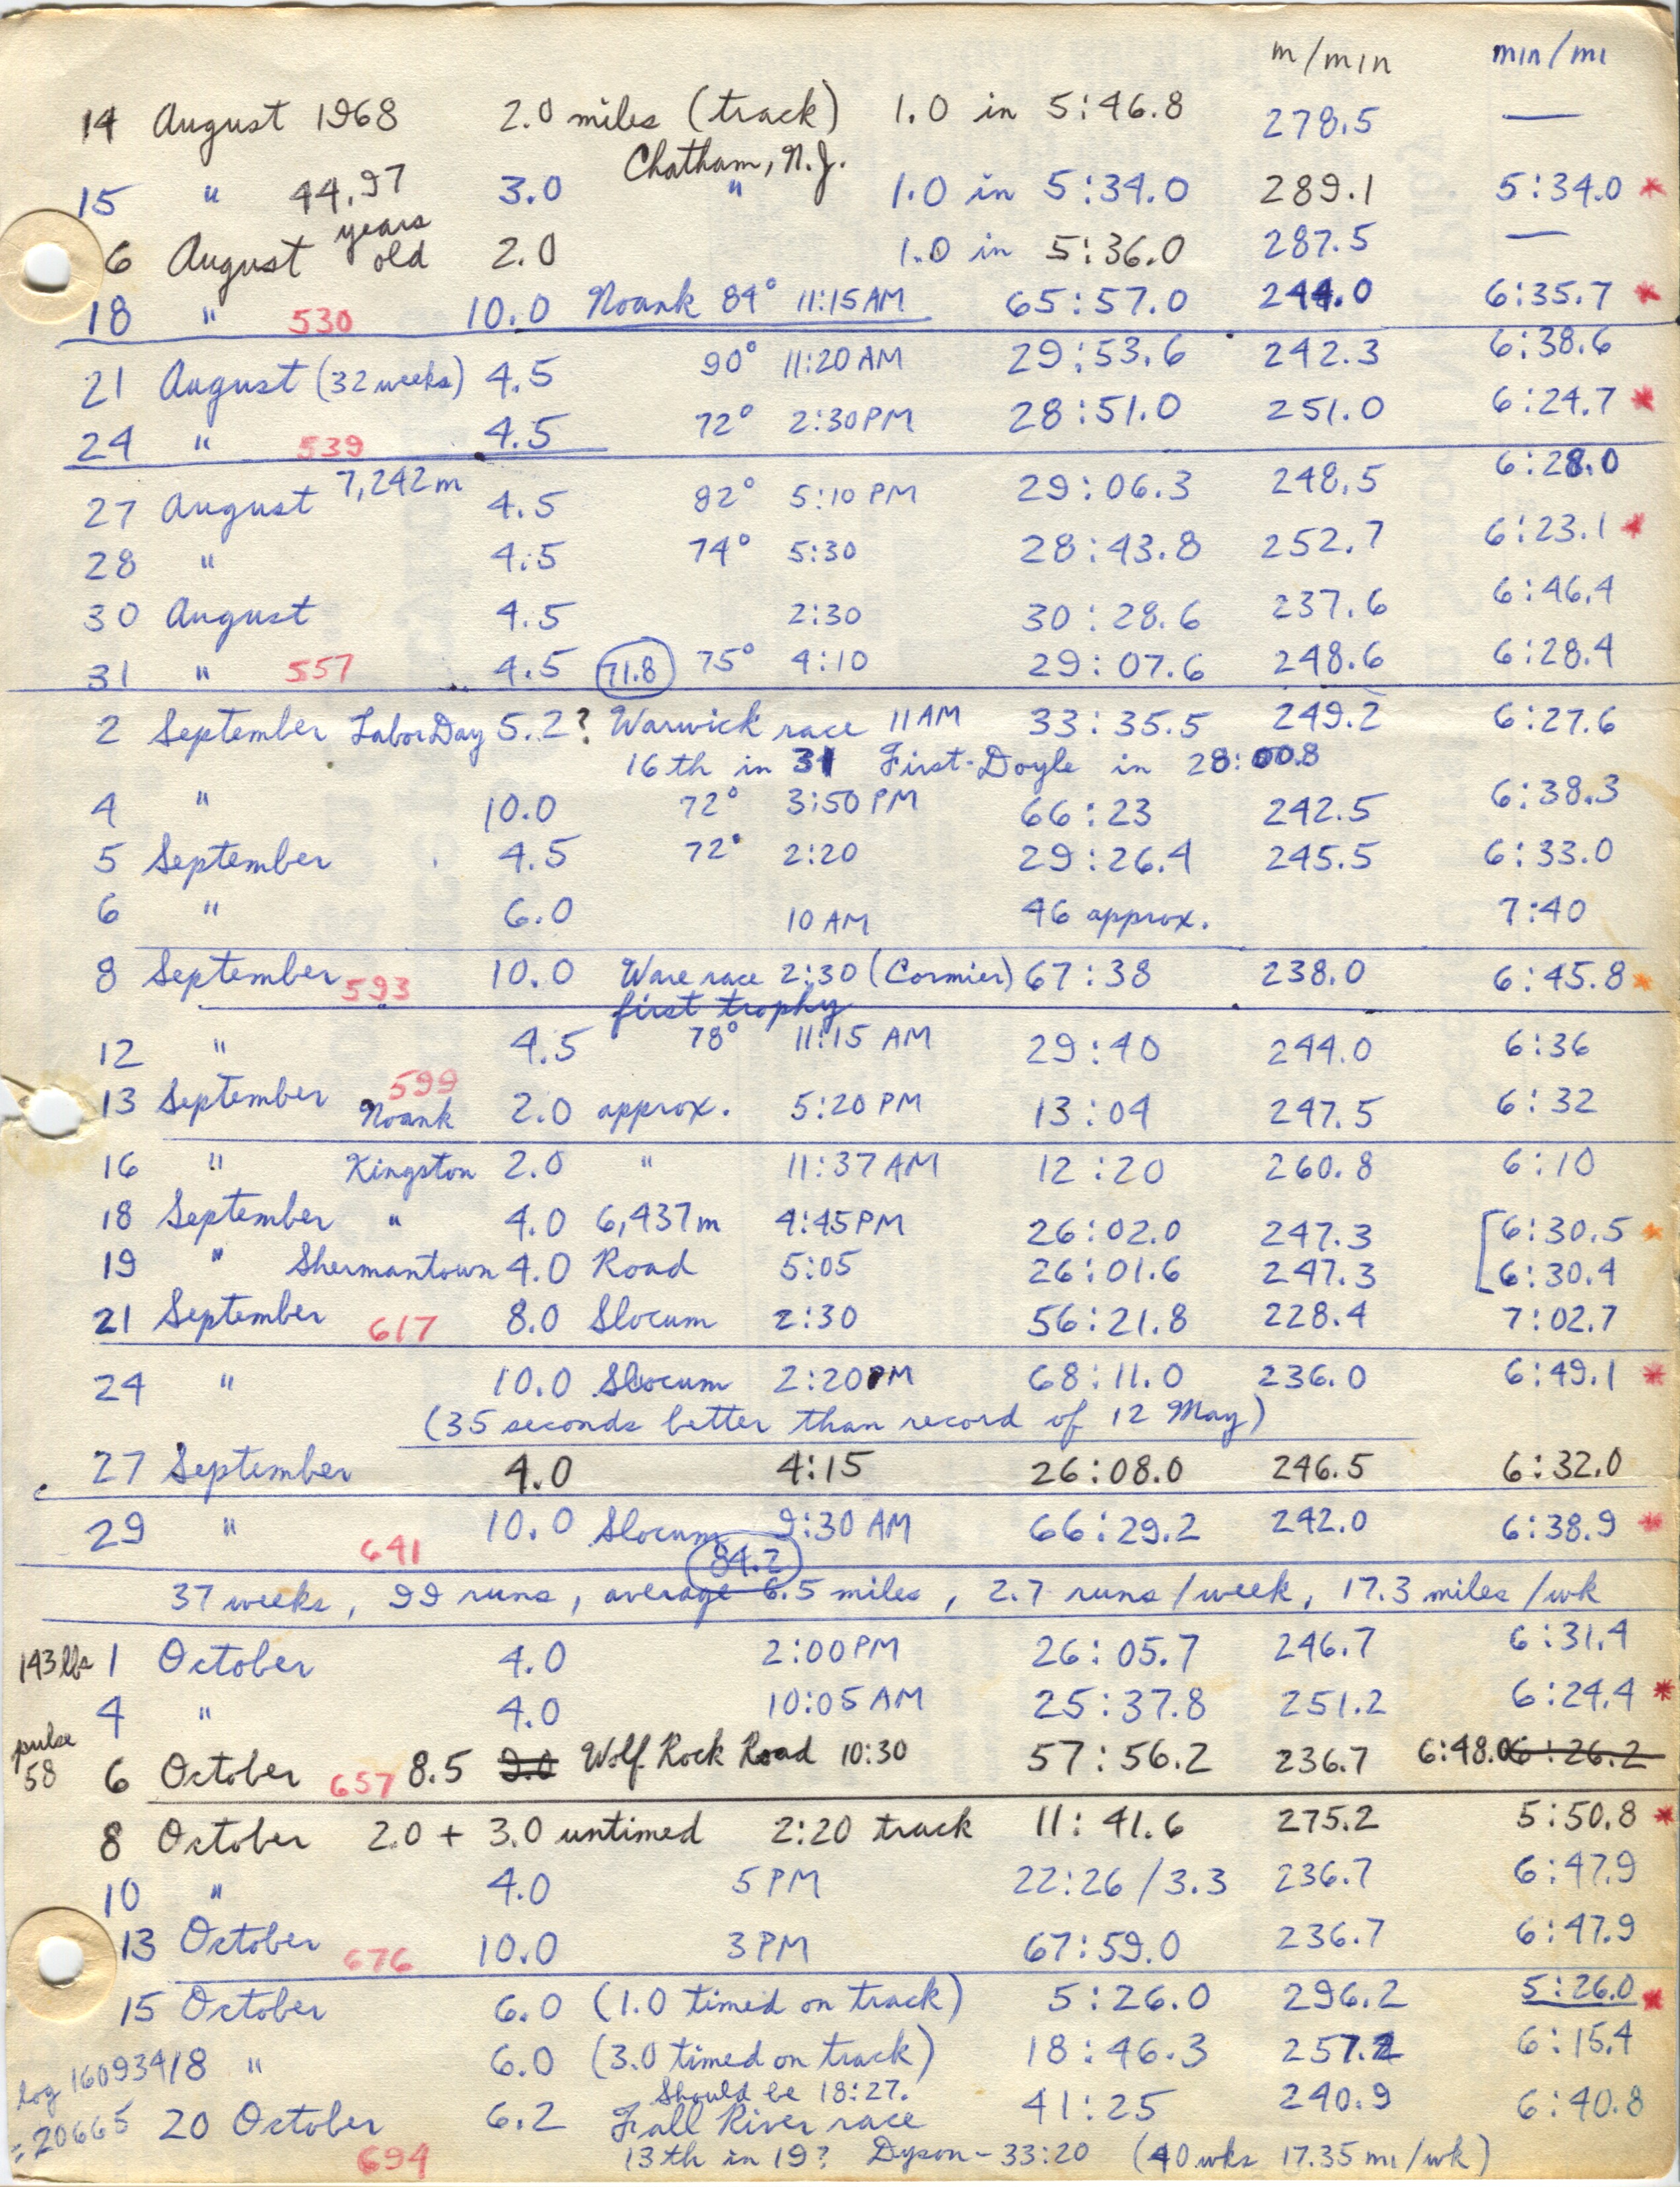 m/min min/mi
14 August 1968 2.0 miles (track) 1.0 in 5:46.8 278.5 —
Chatham, N.J.
15 " 44.97 3.0 " 1.0 in 5:34.0 289.1 5:34.0 *
years
6 August old 2.0 1.0 in 5:36.0 287.5 —
18 " 530 10.0 Noank 84° 11:15 AM 65:57.0 244.0 6:35.7 *
21 August (32 weeks) 4.5 90° 11:20 AM 29:53.6 242.3 6:38.6
24 " 539 4.5 72° 2:30 PM 28:51.0 251.0 6:24.7 *
27 August 7,242 m 4.5 82° 5:10 PM 29:06.3 248.5 6:28.0
28 " 4.5 74° 5:30 28:43.8 252.7 6:23.1 *
30 August 4.5 2:30 30:28.6 237.6 6:46.4
31 " 557 4.5 71.8 75° 4:10 29:07.6 248.6 6:28.4
2 September Labor Day 5.2? Warwick race 11 AM 33:35.5 249.2 6:27.6
16th in 31 First-Doyle in 28:00.8
4 " 10.0 72° 3:50 PM 66:23 242.5 6:38.3
5 September 4.5 72° 2:20 29:26.4 245.5 6:33.0
6 " 6.0 10 AM 46 approx. 7:40
8 September 593 10.0 Ware race 2:30 (Cormier) 67:38 238.0 6:45.8 *
first trophy
12 " 4.5 78° 11:15 AM 29:40 244.0 6:36
13 September 599 Noank 2.0 approx. 5:20 PM 13:04 247.5 6:32
16 " Kingston 2.0 " 11:37 AM 12:20 260.8 6:10
18 September " 4.0 6,437 m 4:45 PM 26:02.0 247.3 [6:30.5 *
19 " Shermantown 4.0 Road 5:05 26:01.6 247.3 [6:30.4
21 September 617 8.0 Slocum 2:30 56:21.8 228.4 7:02.7
24 " 10.0 Slocum 2:20 PM 68:11.0 236.0 6:49.1 *
(35 seconds better than record of 12 May)
27 September 4.0 4:15 26:08.0 246.5 6:32.0
29 " 641 10.0 Slocum 9:30 AM 66:29.2 242.0 6:38.9 *
84.2
37 weeks, 99 runs, average 6.5 miles, 2.7 runs/week, 17.3 miles/wk
143 lbs 1 October 4.0 2:00 PM 26:05.7 246.7 6:31.4
4 " 4.0 10:05 AM 25:37.8 251.2 6:24.4 *
pulse
58 6 October 657 8.5 9.0 Wolf Rock Road 10:30 57:56.2 236.7 6:48.0 6:26.2
8 October 2.0 + 3.0 untimed 2:20 track 11:41.6 275.2 5:50.8 *
10 " 4.0 5 PM 22:26/3.3 236.7 6:47.9
13 October 676 10.0 3 PM 67:59.0 236.7 6:47.9
15 October 6.0 (1.0 timed on track) 5:26.0 296.2 5:26.0 *
log 160934 18 " 6.0 (3.0 timed on track) 18:46.3 257.2 6:15.4
Should be 18:27.
= 20665 20 October 6.2 Fall River race 41:25 240.9 6:40.8
694 13th in 19? Dyson - 33:20 (40 wks 17.35 mi/wk)